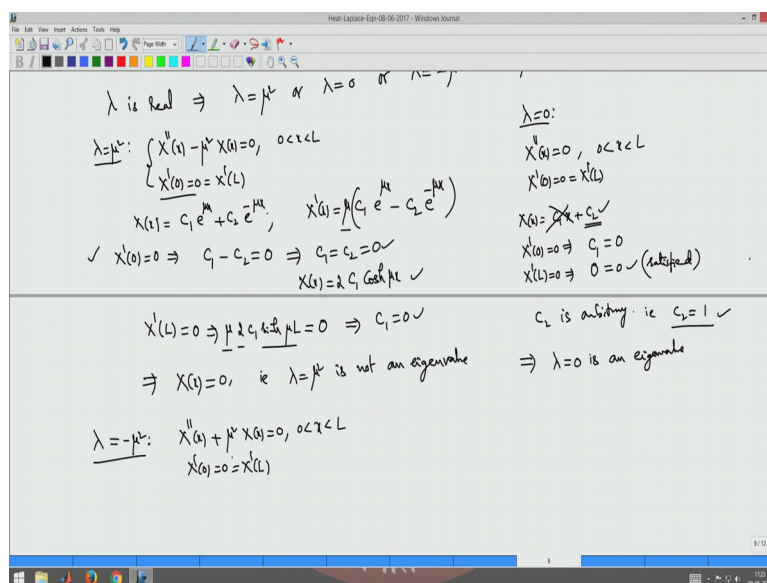 Heat-Laplace-Eqn-08-06-2017 - Windows Journal
File Edit View Insert Actions Tools Help
Page Width
B I
λ is real ⇒ λ=μ² or λ=0 or λ=-μ²
λ=μ²: { X''(x) - μ² X(x)=0, 0<x<L
X'(0)=0=X'(L)
X(x) = C₁ e^{μx} + C₂ e^{-μx}; X'(x) = μ(C₁ e^{μx} - C₂ e^{-μx})
✓ X'(0)=0 ⇒ C₁-C₂=0 ⇒ C₁=C₂=0 ✓
X(x)=2 C₁ Cosh μx ✓
X'(L)=0 ⇒ μ 2 C₁ sinh μL=0 ⇒ C₁=0 ✓
⇒ X(x)=0, ie λ=μ² is not an eigenvalue
λ=-μ²: X''(x) + μ² X(x)=0, 0<x<L
X'(0)=0=X'(L)
λ=0:
X''(x)=0, 0<x<L
X'(0)=0=X'(L)
X(x)= C₁x + C₂ ✓
X'(0)=0 ⇒ C₁=0
X'(L)=0 ⇒ 0=0 ✓ (satisfied)
C₂ is arbitrary. ie C₂=1 ✓
⇒ λ=0 is an eigenvalue
9/12
9
17:23